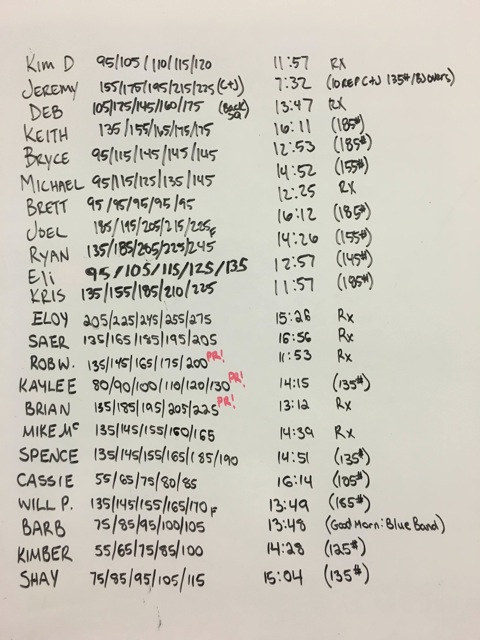 Kim D 95/105/110/115/120 11:57 RX
JEREMY 155/175/195/215/225 (C+J) 7:32 (10 REP C+J 135#/BJ overs)
DEB 105/125/145/160/175 (Back SQ) 13:47 RX
KEITH 135/155/165/175/175 16:11 (185#)
BRYCE 95/115/145/145/145 12:53 (185#)
MICHAEL 95/115/125/135/145 14:52 (155#)
BRETT 95/95/95/95/95 12:25 RX
JOEL 185/195/205/215/225F 16:12 (185#)
RYAN 135/185/205/225/245 14:26 (155#)
Eli 95/105/115/125/135 12:57 (145#)
KRIS 135/155/185/210/225 11:57 (185#)
ELOY 205/225/245/255/275 15:26 Rx
SAER 135/165/185/195/205 16:56 Rx
ROB W. 135/145/165/175/200 PR! 11:53 Rx
KAYLEE 80/90/100/110/120/130 PR! 14:15 (135#)
BRIAN 135/185/195/205/225 PR! 13:12 Rx
MIKE Mc 135/145/155/160/165 14:39 Rx
SPENCE 135/145/155/165/185/190 14:51 (135#)
CASSIE 55/65/75/80/85 16:14 (105#)
WILL P. 135/145/155/165/170F 13:49 (165#)
BARB 75/85/95/100/105 13:48 (Good Morn: Blue Band)
KIMBER 55/65/75/85/100 14:28 (125#)
SHAY 75/85/95/105/115 15:04 (135#)